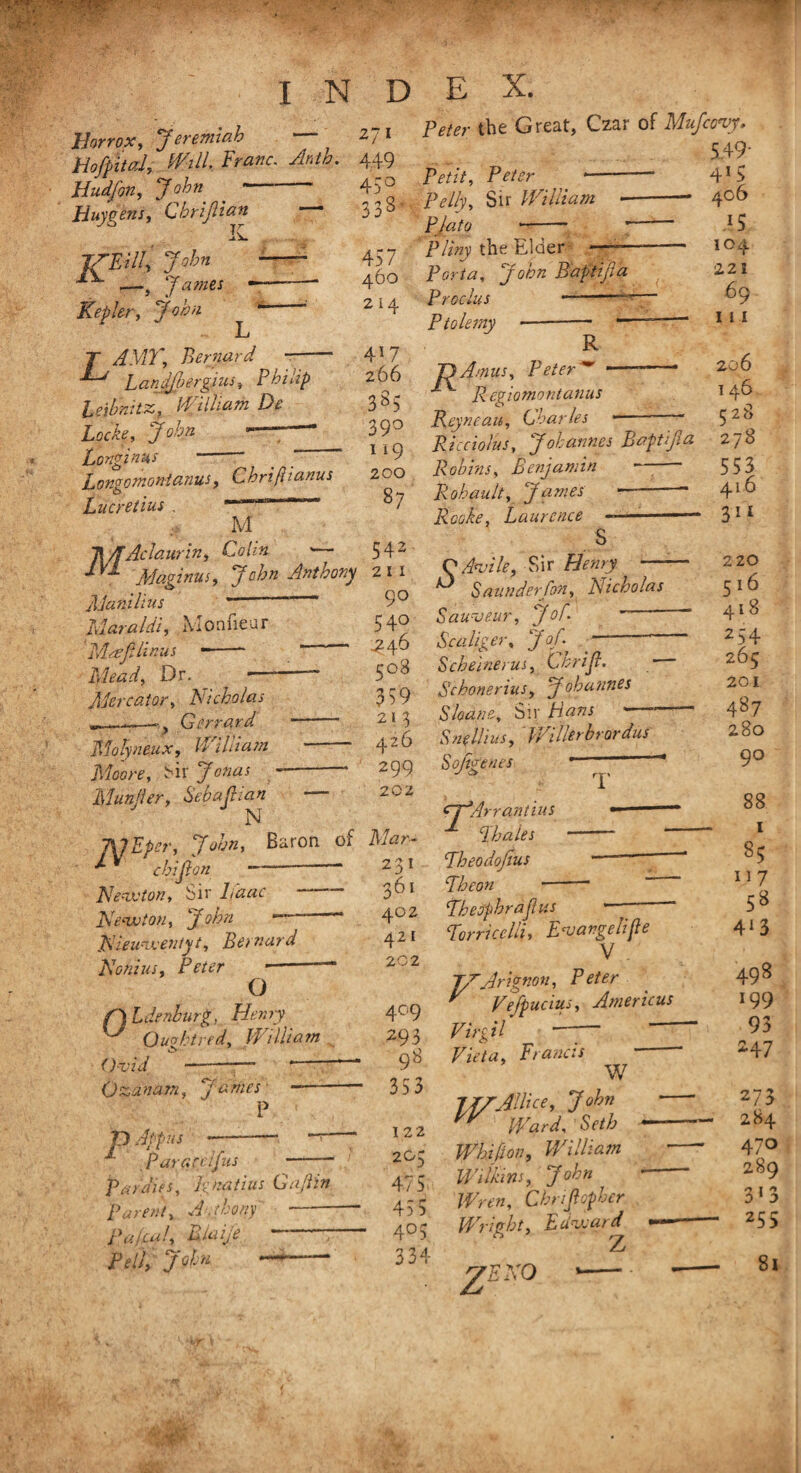 INDEX.
Horrox, Jeremiah — 271
Hoſpital, Will. Franc. Anth. 449
Hudſon, John — 450
Huygens, Chriſtian — 338
K
KEill, John — 457
—, James — 460
Kepler, John — 214
L
LAMY, Bernard — 417
Landſbergius, Philip 266
Leibnitz, William De 385
Locke, John — 390
Longinus — — 119
Longomontanus, Chriſtianus 200
Lucretius . — 87
M
MAclaurin, Colin — 542
Maginus, John Anthony 211
Manilius — 90
Maraldi, Monſieur 540
Mæſtlinus — — 246
Mead, Dr. — 508
Mercator, Nicholas 359
—, Gerrard — 213
Molyneux, William — 426
Moore, Sir Jonas — 299
Munſter, Sebaſtian — 202
N
NEper, John, Baron of Mar-
chiſton — 231
Newton, Sir Iſaac — 361
Newton, John — 402
Nieuwentyt, Bernard 421
Nonius, Peter — 202
O
OLdenburg, Henry 409
Oughtred, William 293
Ovid — — 98
Ozanam, James — 353
P
PAppus — — 122
Paracelſus — 205
Pardies, Ignatius Gaſtin 475
Parent, Anthony — 455
Paſcal, Blaiſe — 405
Pell, John — 334
Peter the Great, Czar of Muſcovy.
549
Petit, Peter — 415
Pelly, Sir William — 406
Plato — — 15
Pliny the Elder — 104
Porta, John Baptiſta 221
Proclus — 69
Ptolemy — — 111
R
RAmus, Peter — 206
Regiomontanus 146
Reyneau, Charles — 528
Ricciolus, Johannes Baptiſta 278
Robins, Benjamin — 553
Rohault, James — 416
Rooke, Laurence — 311
S
SAvile, Sir Henry — 220
Saunderſon, Nicholas 516
Sauveur, Joſ. — 418
Scaliger, Joſ. — 254
Scheinerus, Chriſt. — 265
Schonerius, Johannes 201
Sloane, Sir Hans — 487
Snellius, Willerbrordus 280
Soſigenes — 90
T
TArrantius — 88
Thales — — 1
Theodoſius — 85
Theon — — 117
Theophraſtus — 58
Torricelli, Evangeliſte 413
V
VArignon, Peter 498
Veſpucius, Americus 199
Virgil — — 93
Vieta, Francis — 247
W
WAllice, John — 273
Ward, Seth — 284
Whiſton, William — 470
Wilkins, John — 289
Wren, Chriſtopher 313
Wright, Edward — 255
Z
ZENO — — 81